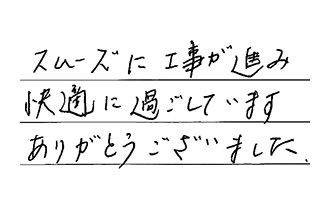 スムーズに工事が進み
快適に過ごしています
ありがとうございました.